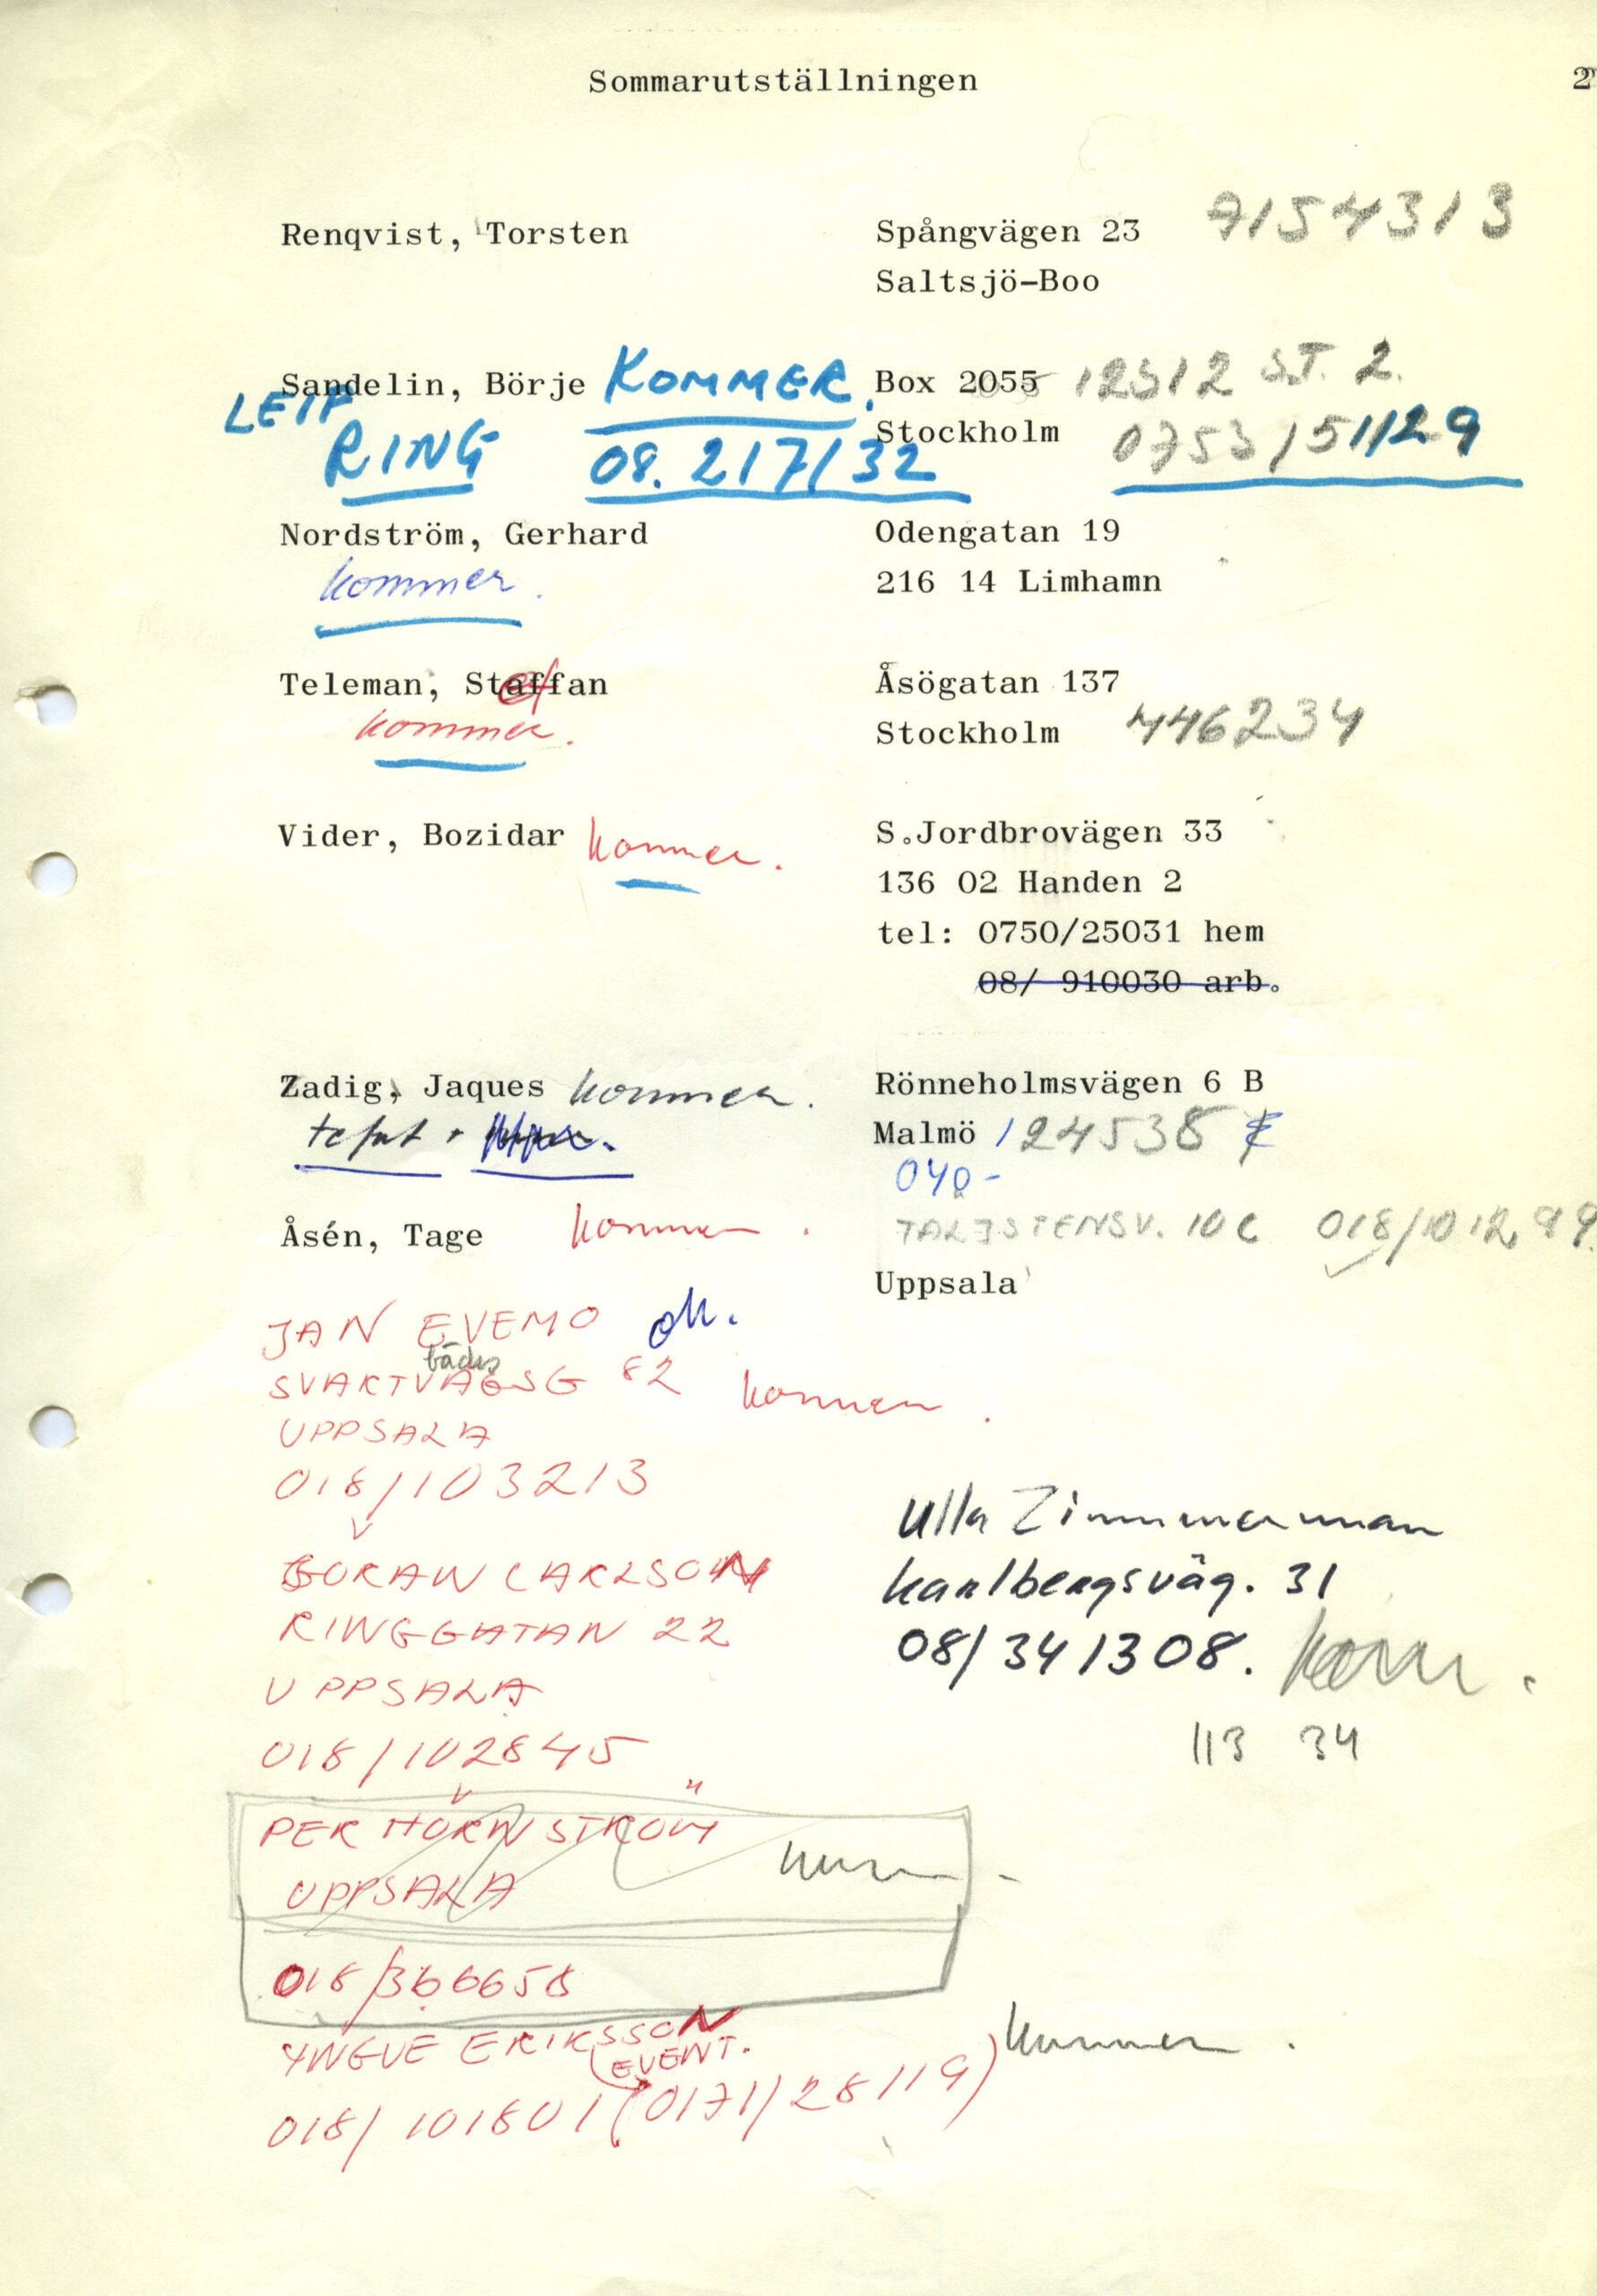 Sommarutställningen 2
Renqvist, Torsten Spångvägen 23 7154313
Saltsjö-Boo
Sandelin, Börje KOMMER. Box 2055 12312 ST. 2.
LEIF Stockholm 0753/51129
RING 08.217132
Nordström, Gerhard Odengatan 19
kommer. 216 14 Limhamn
Teleman, Staffan Åsögatan 137
kommer. Stockholm 446234
Vider, Bozidar kommer. S.Jordbrovägen 33
136 02 Handen 2
tel: 0750/25031 hem
08/ 910030 arb.
Zadig, Jaques kommer. Rönneholmsvägen 6 B
Malmö 124538
040-
Åsén, Tage kommer. 10 C 018/101299.
Uppsala
JAN EVEMO ok.
bäcks
SVARTVAGSG 82 kommer.
UPPSALA
018/103213
GORAN CARLSON
RINGGATAN 22
UPPSALA
018/102845
Ulla Zimmerman
Karlbergsväg. 31
08/341308. Kom.
113 34
PER HÖRNSTRÖM
UPPSALA
018/366658
YNGVE ERIKSSON kommer.
EVENT.
018/101801 (0171/28119)